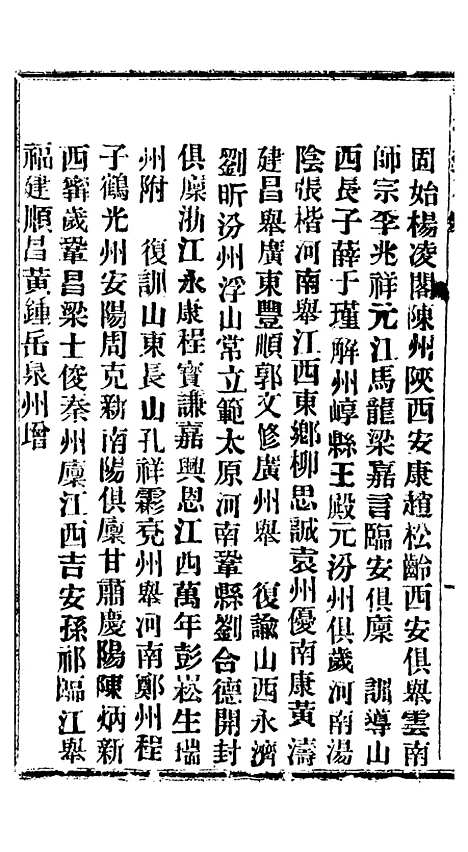 固始楊凌閣陳州陝西安康趙松齡西安俱舉雲南
師宗李兆祥元江馬龍梁嘉言臨安俱廩　訓導山
西長子薛于瑾解州崞縣王殿元汾州俱歲河南湯
陰張楷河南舉江西東鄉柳思誠袁州優南康黃濤
建昌舉廣東豐順郭文修廣州舉　復諭山西永濟
劉昕汾州浮山常立範太原河南鞏縣劉合德開封
俱廩浙江永康程寶謙嘉興恩江西萬年彭崧生瑞
州附　復訓山東長山孔祥霦兗州舉河南鄭州程
子鶴光州安陽周克新南陽俱廩甘肅慶陽陳炳新
西寗歲鞏昌梁士俊秦州廩江西吉安孫祁臨江舉
福建順昌黃鍾岳泉州增